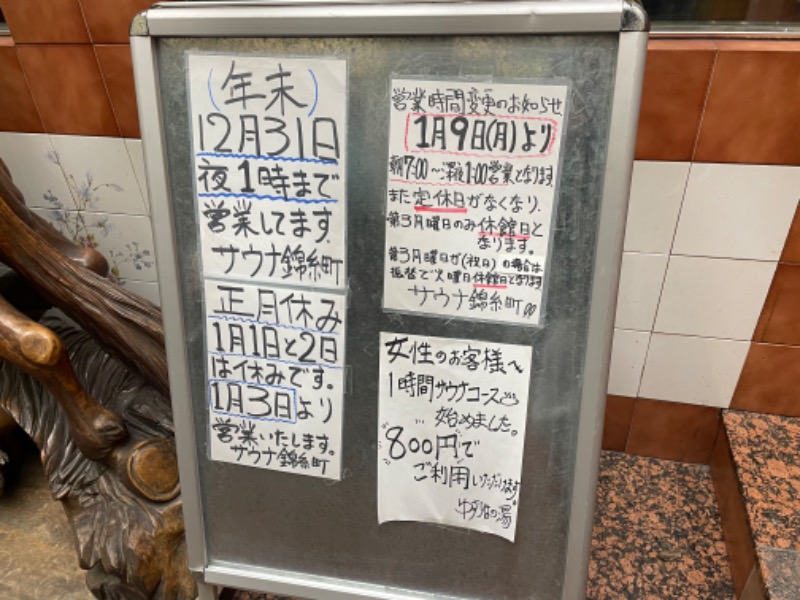 (年末)
12月31日
夜1時まで
営業してます。
サウナ錦糸町
正月休み
1月1日と2日
は休みです。
1月3日より
営業いたします。
サウナ錦糸町
営業時間変更のお知らせ
1月9日(月)より
朝7:00〜深夜1:00営業となります。
また定休日がなくなり、
第3月曜日のみ休館日と
なります。
第3月曜日が(祝日)の場合は
振替で火曜日休館日となります
サウナ錦糸町
女性のお客様へ
1時間サウナコース♨
始めました。
800円で
ご利用いただけます。
の湯